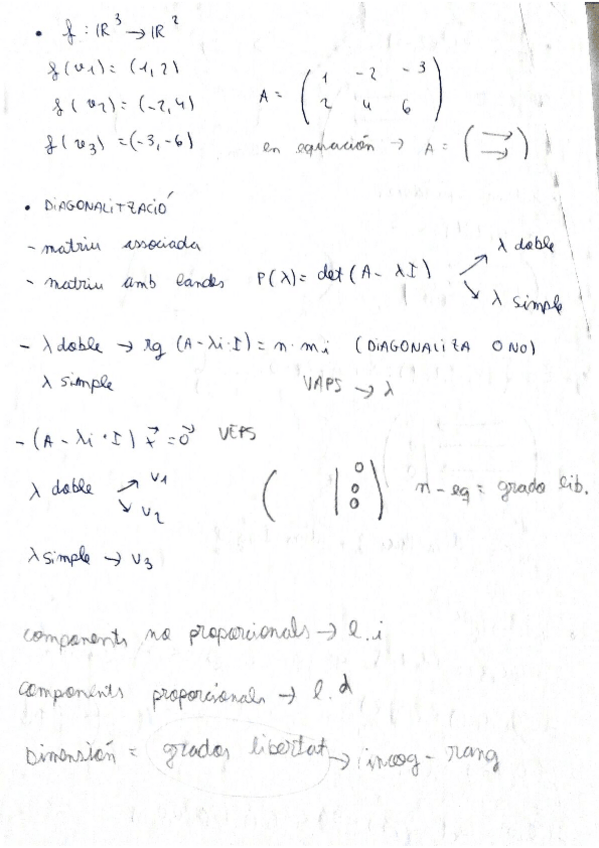 • f : ℝ³ → ℝ²
f(v1) = (1, 2)
f(v2) = (-2, 4)
f(v3) = (-3, -6)
A = ( 1 -2 -3
2 4 6 )
en equación → A = ( → → )
• DIAGONALITZACIÓ
- matriu associada
- matriu amb landes P(λ) = det (A - λI) ↗ λ doble
↘ λ simple
- λ doble → rg (A - λi·I) = n - mi (DIAGONALIZA O NO)
λ simple VAPS → λ
- (A - λi · I) x⃗ = 0⃗ VEPS
λ doble ↗ v1
↘ v2
( | 0 0 0 ) n - eq = grado lib.
λ simple → v3
components no proporcionals → l.i
components proporcionals → l.d
Dimensión = grados libertat → incog - rang